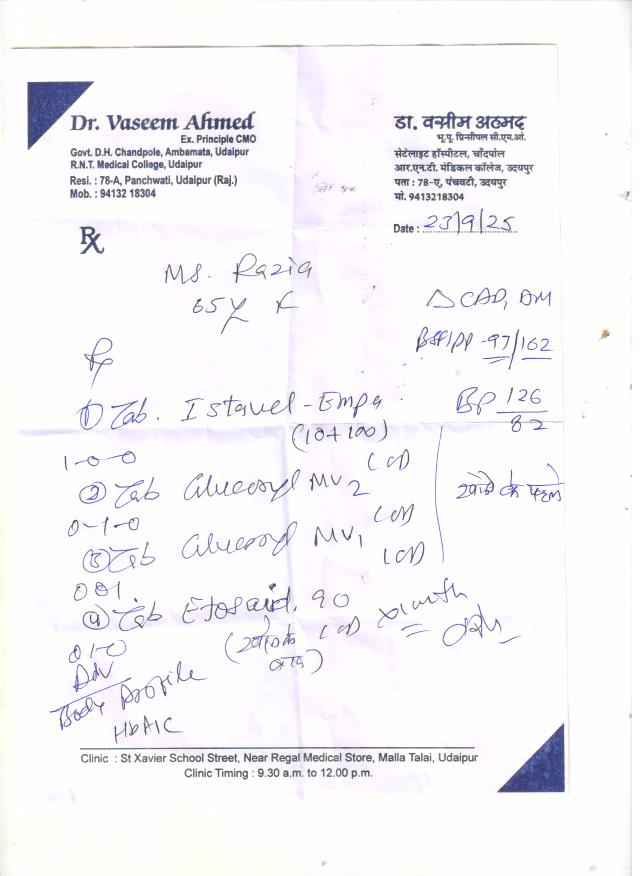 Dr. Vaseem Ahmed
Ex. Principle CMO
Govt. D.H. Chandpole, Ambamata, Udaipur
R.N.T. Medical College, Udaipur
Resi. : 78-A, Panchwati, Udaipur (Raj.)
Mob. : 94132 18304
डा. वसीम अहमद
भू.पू. प्रिन्सीपल सी.एम.ओ.
सेटेलाइट हॉस्पीटल, चाँदपोल
आर.एन.टी. मेडिकल कॉलेज, उदयपुर
पता : 78-ए, पंचवटी, उदयपुर
मो. 9413218304
Date : 23/9/25
Rx
Ms. Razia
65y F
△ CAD, DM
97/162
BP 126/82
Rp
① Tab. Istavel-Empa
(10+100)
1-0-0
② Tab Glucoryl MV2
0-1-0
खाने के पहले
③ Tab Glucoryl MV1
001
④ Tab Etosaid. 90
01-0
(खाने के
बाद)
x1 month
Adv
Body Profile
HbA1C
Clinic : St Xavier School Street, Near Regal Medical Store, Malla Talai, Udaipur
Clinic Timing : 9.30 a.m. to 12.00 p.m.